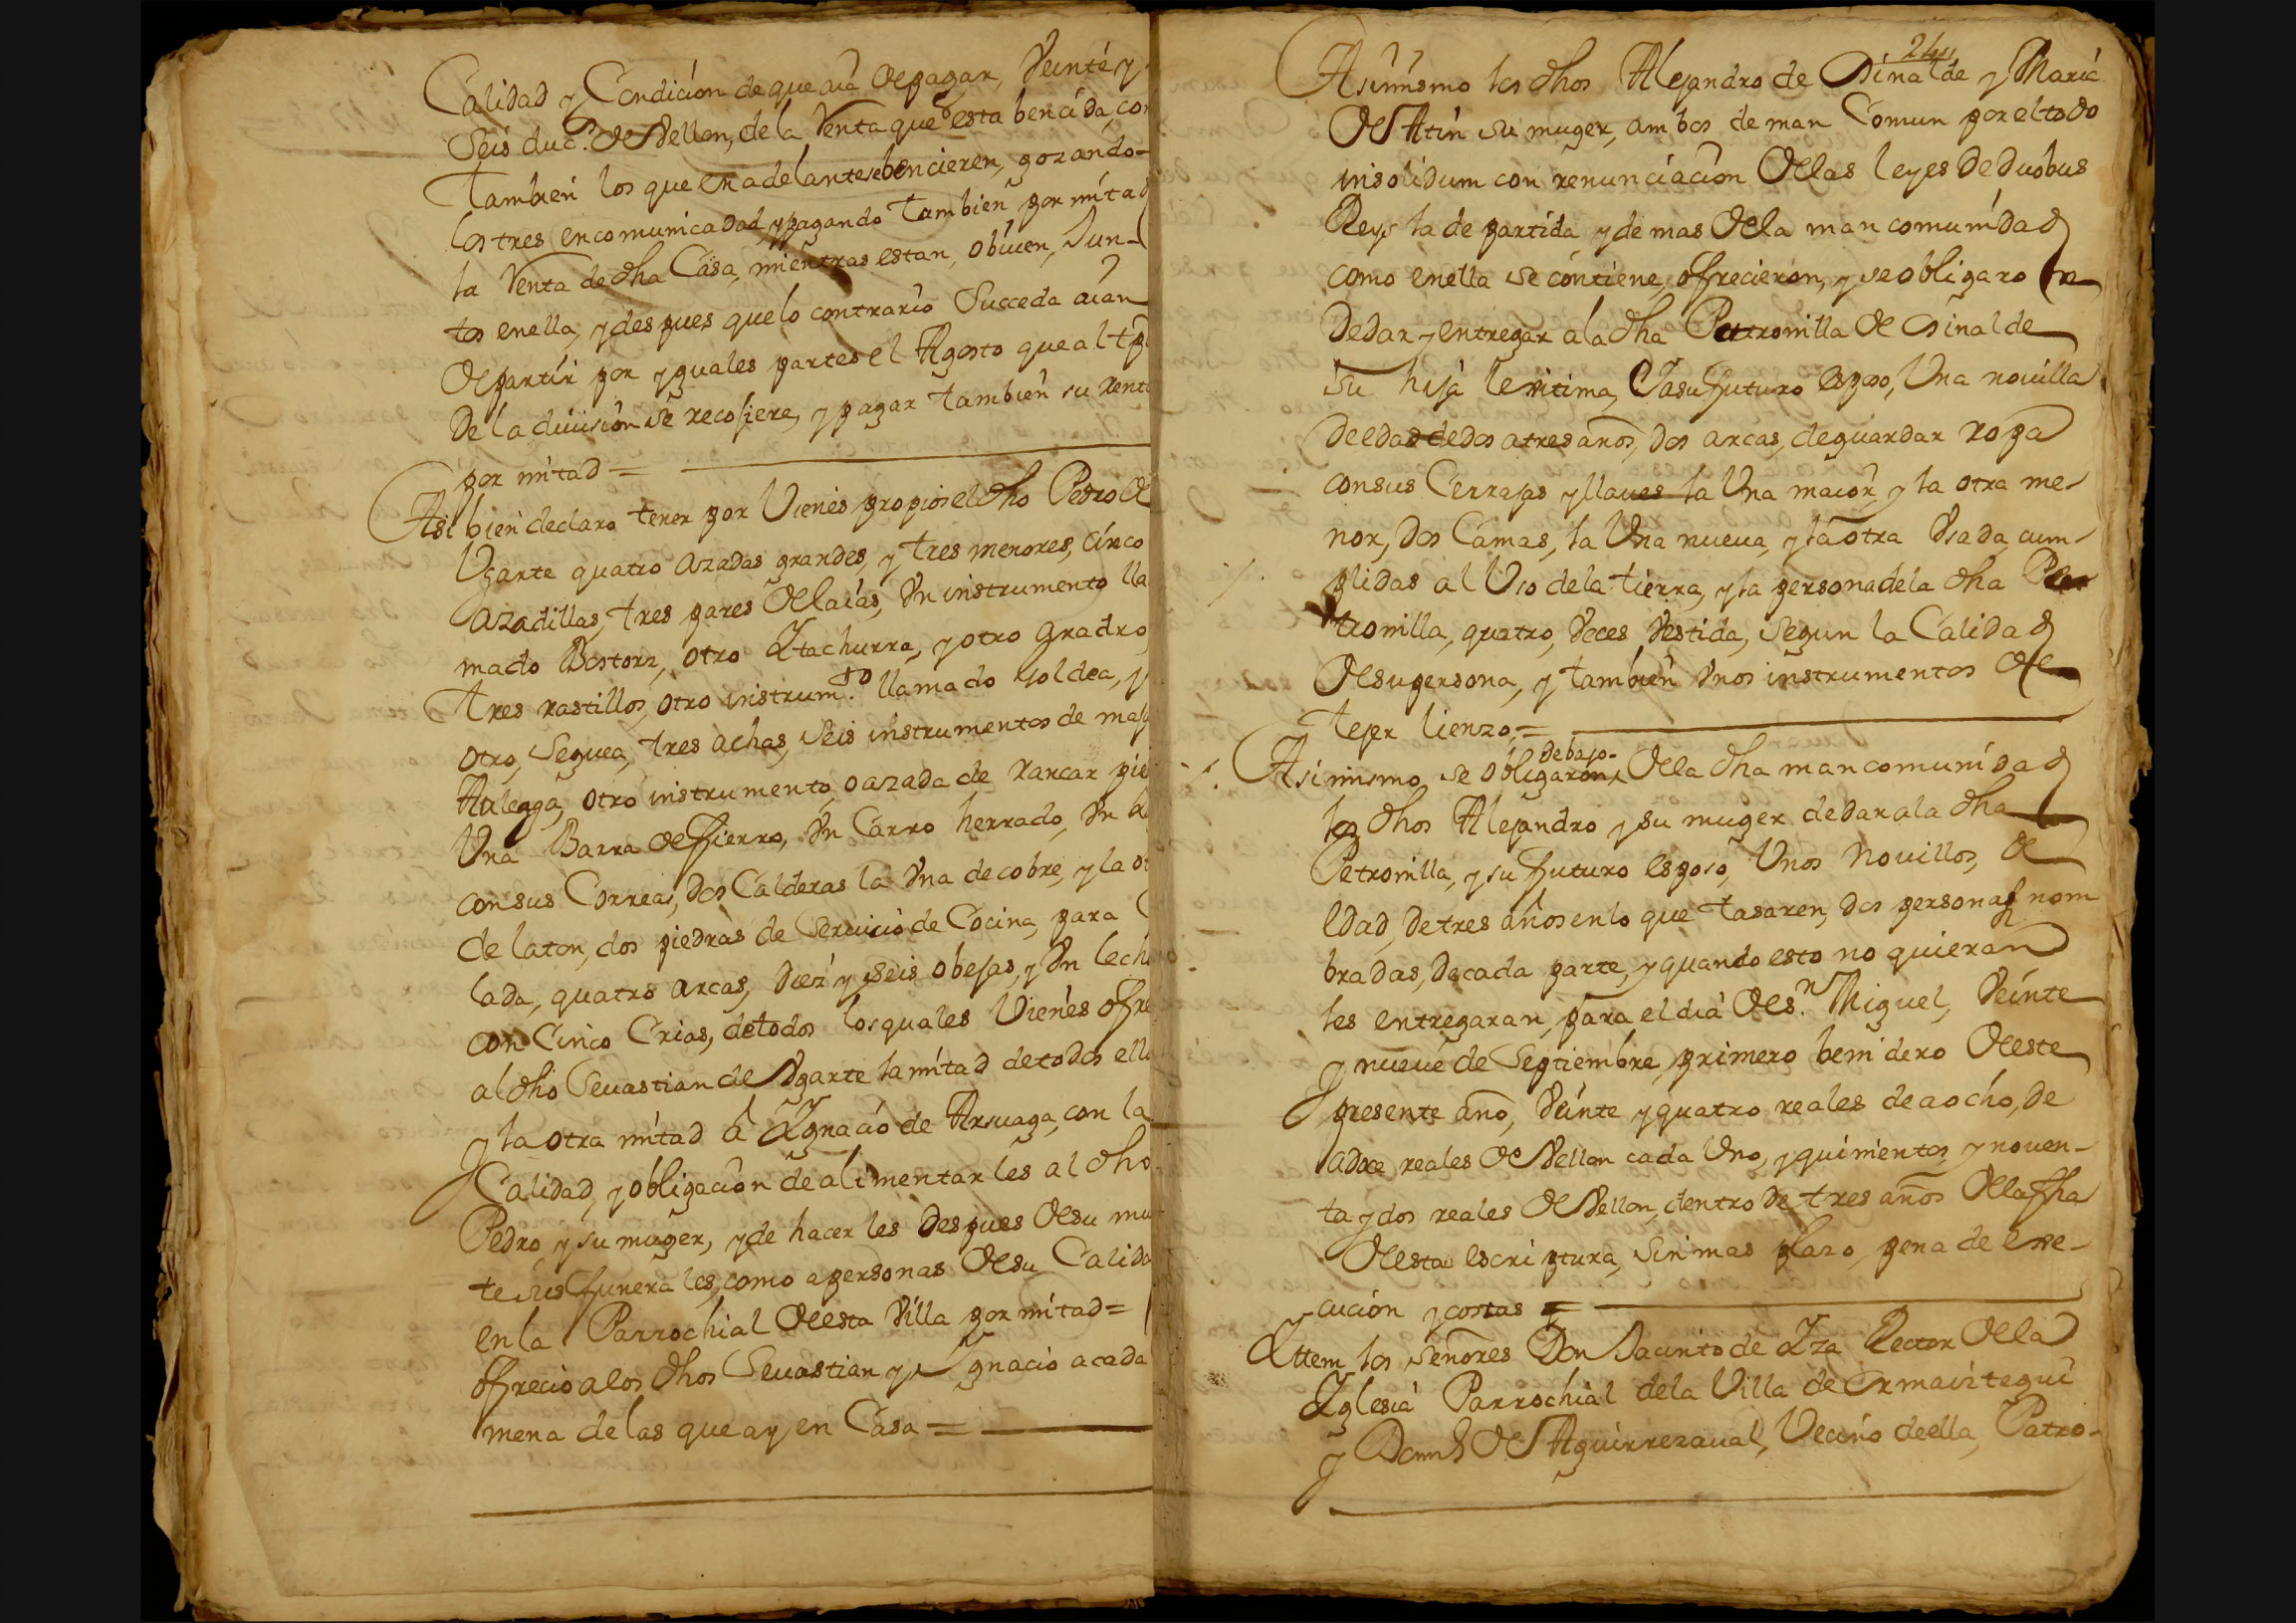 Calidad y Condicion de que aia de pagar, Veinte y
Seis duc.s de Vellon, de la Renta que esta bencida, co
tambien los que en adelante se bencieren, gozando
los tres en comunicadad, y pagando tambien por mitad
la Renta de dha Casa, mientras estan, o biuen, Jun-
tos en ella, y despues que lo contrario Succeda aian
de partir por yguales partes el Agosto que al tpo
de la diuision se recojiere, y pagar tambien su rent
por mitad =
Asi bien declaro tener por Vienes propios el dho Pedro de
Vgarte quatro azadas grandes, y tres menores, Cinco
azadillas, tres pares de laias, Vn instrumento lla
mado Bostorz, otro Ytachurra, y otro Gradro,
tres rastillos, otro instrum.to llamado Goldea, y
otro, Seguea, tres achas, Seis instrumentos de maj
Auleaga, otro instrumento, o azada de rancar pie
Vna Barra de fierro, Vn Carro herrado, Vn
con sus Correas, dos Calderas la Vna de cobre, y la o
de laton, dos piedras de Seruicio de Cocina, para
lada, quatro arcas, diez y seis obejas, y Vn lech
con Cinco Crias, de todos los quales Vienes ofre
al dho Seuastian de Vgarte la mitad de todos ello
y la otra mitad à Ygnacio de Arsuaga, con la
Calidad, y obligacion de alimentarles al dho
Pedro y su muger, y de hacerles despues de su mu
te sus funerales, como a personas de su Calida
en la Parrochial de esta Villa por mitad =
ofrecio a los dhos Seuastian y Ygnacio a cada
mena de las que ay en Casa =
24
Asimismo los dhos Alejandro de Osinalde y Maria
de Atin su muger, ambos de man Comun por el todo
insolidum con renunciacion de las leyes de duobus
Reys la de partida y demas de la mancomunidad
como en ella se contiene, ofrecieron, y se obligaron
de dar y entregar a la dha Petronilla de Osinalde
su hija lexitima, y a su futuro espso, Vna nouilla
de edad de dos a tres años, dos arcas, de guardar ropa
con sus Cerrajas y llaues la Vna maior, y la otra me-
nor, dos Camas, la Vna nueua, y la otra Vsada, cum-
plidas al Vso de la tierra, y la persona de la dha Pe
tronilla, quatro, Veces Vestida, Segun la Calidad
de su persona, y tambien Vnos instrumentos de
tejer lienzo, =
Asimismo se obligaron, debajo de la dha mancomunidad
los dhos Alejandro y su muger de dar a la dha
Petronilla, y su futuro esposo, Vnos nouillos, de
edad, de tres años en lo que tasaren, dos personas nom
bradas, de cada parte, y quando esto no quieran
les entregaran, para el dia de S.n Miguel, Veinte
y nueue de Septiembre, primero benidero de este
presente año, Veinte y quatro reales de a ocho, de
a doce reales de Vellon cada Vno, y quinientos, y nouen-
ta y dos reales de Vellon, dentro de tres años de la fha
de esta escriptura, Sin mas plazo, pena de exe-
cucion y costas =
Yttem los Señores Don Jacinto de Yza Rector de la
Yglesia Parrochial de la Villa de Ormaiztegui
y Domingo de Aguirrezaual, Vecino de ella, Patro-